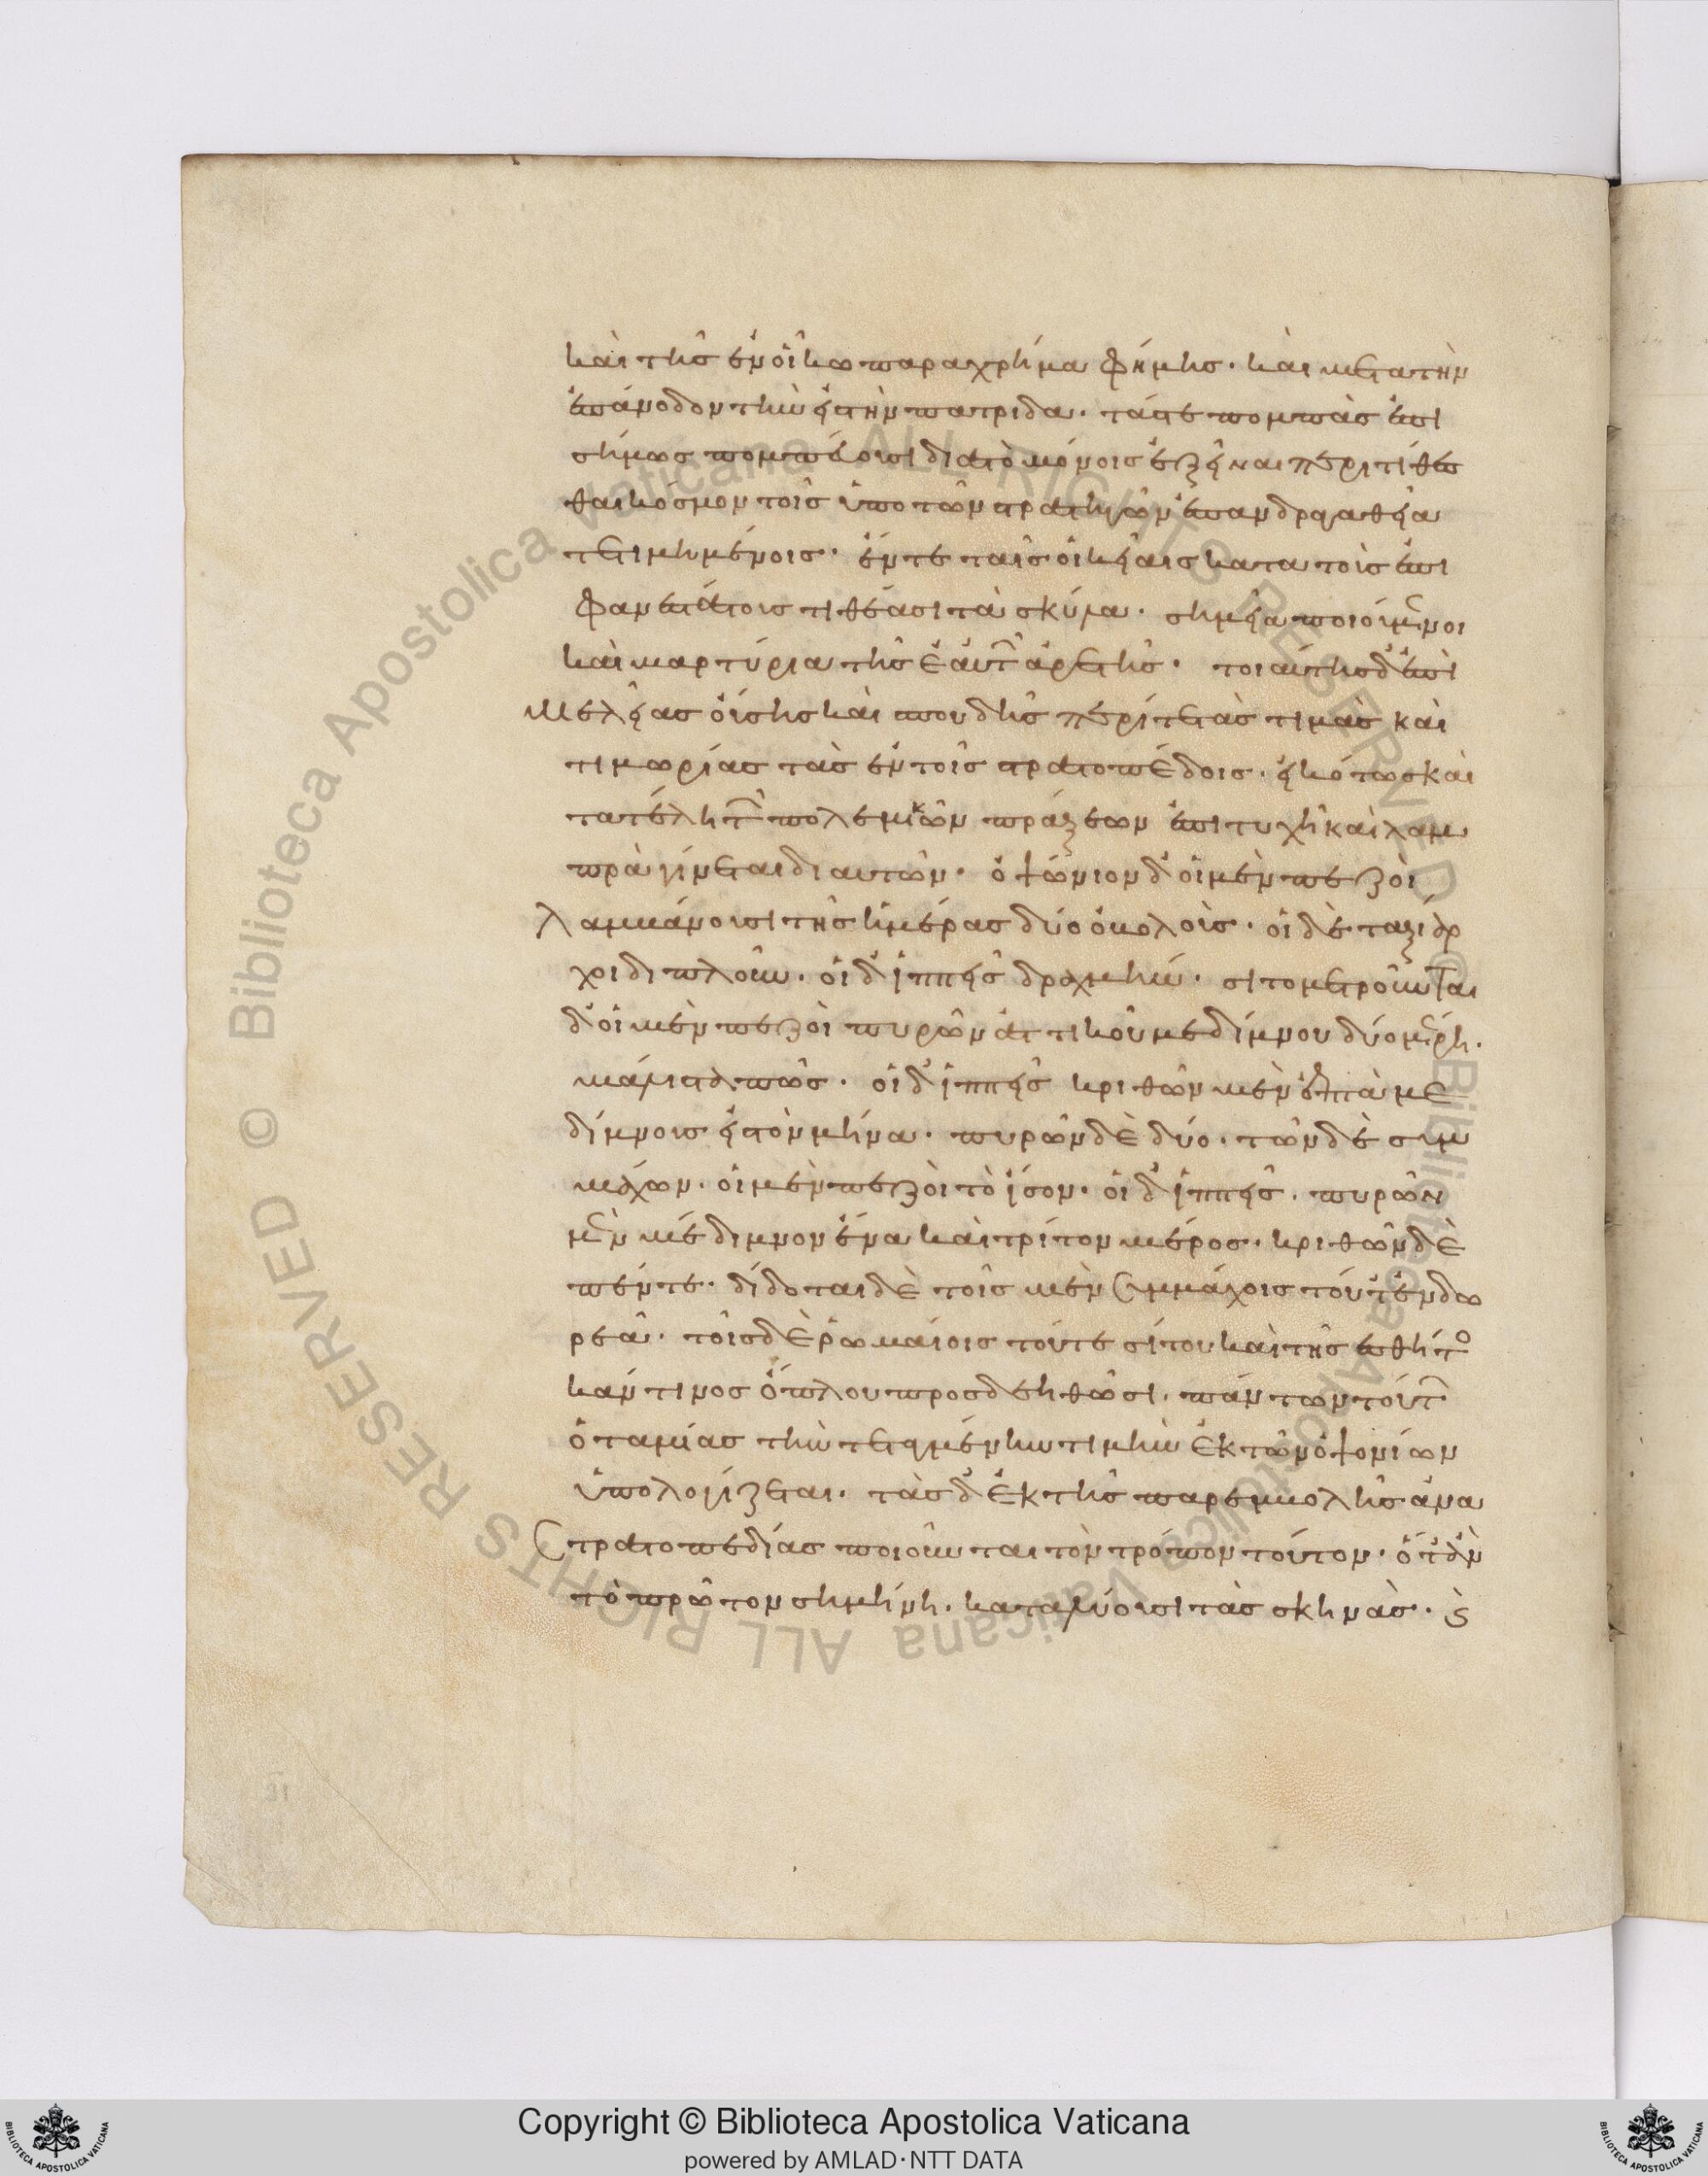 καὶ τῆς ἐν οἴκω παραχρῆμα φήμης· καὶ μετὰ τὴν
ἐπάνοδον τὴν εἰς τὴν πατρίδα· τάς τε πομπὰς ἐπι
σήμως πομπεύουσι διὰ τὸ μόνοις ἐξεῖναι περιτίθεσ
θαι κόσμον τοῖς ὑπὸ τῶν στρατηγῶν ἐπ ανδραγαθεία
τετιμημένοις· ἔν τε ταῖς οἰκείαις κατα τοὺς ἐπι
φανεστάτους τιθέασι τὰ σκῦλα· σημεῖα ποιούμενοι
καὶ μαρτύρια τῆς ἑαυτῶν ἀρετῆς· τοιαύτης δ' ἐπι
μελείας οὔσης καὶ σπουδῆς περί τε τὰς τιμὰς καὶ
τιμωρίας τὰς ἐν τοῖς στρατοπέδοις· εἰκότως καὶ
τα τέλη τῶν πολεμικῶν πράξεων ἐπιτυχῆ καὶ λαμ
πρὰ γίνεται δι αυτῶν· ὀψώνιον δ' οἱ μὲν πεζοὶ
λαμβάνουσι τῆς ἡμέρας δύο ὀβολοὺς· οἱ δὲ ταξιάρ
χοι διπλοῦν· οἱ δ' ἱππεῖς δραχμήν· σιτομετροῦνται
δ' οἱ μὲν πεζοὶ πυρῶν ἀττικοῦ μεδίμνου δύο μέρη·
μάλιστά πως· οἱ δ' ἱππεῖς κριθῶν μὲν ἑπτὰ με
δίμνους εἰς τὸν μῆνα· πυρῶν δὲ δύο· τῶν δὲ συμ
μάχων· οἱ μὲν πεζοὶ τὸ ἴσον· οἱ δ' ἱππεῖς· πυρῶν
μὲν μέδιμνον ἕνα καὶ τρίτον μέρος· κριθῶν δὲ
πέντε· δίδοται δὲ τοῖς μὲν συμμάχοις τοῦτ' ἐν δω
ρεᾶ· τοῖς δὲ ῥωμαίοις τοῦ τε σίτου καὶ τῆς ἐσθῆτος
κἄν τινος ὅπλου προσδεηθῶσι· πάντων τούτων
ὁ ταμίας τὴν τεταγμένην τιμὴν ἐκ τῶν ὀψονίων
ὑπολογίζεται· τὰς δ' ἐκ τῆς παρεμβολῆς ἀνα
στρατοπεδίας ποιοῦνται τὸν τρόπον τοῦτον· ὅταν
τὸ πρῶτον σημήνη· καταλύουσι τὰς σκηνὰς· καὶ
Copyright © Biblioteca Apostolica Vaticana
powered by AMLAD·NTT DATA